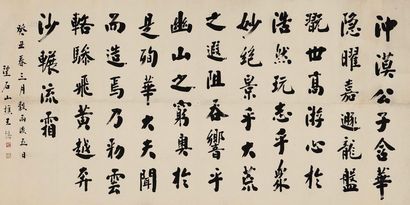 沖漠公子含華
隱曜嘉遯龍盤
翫世高游心於
浩然玩志乎衆
妙絕景乎大荒
之遐阻吞響乎
幽山之窮奧於
是殉華大夫聞
而造焉乃勑雲
輅驂飛黃越奔
沙輾流霜
癸丑春三月穀雨後五日
石山樵王